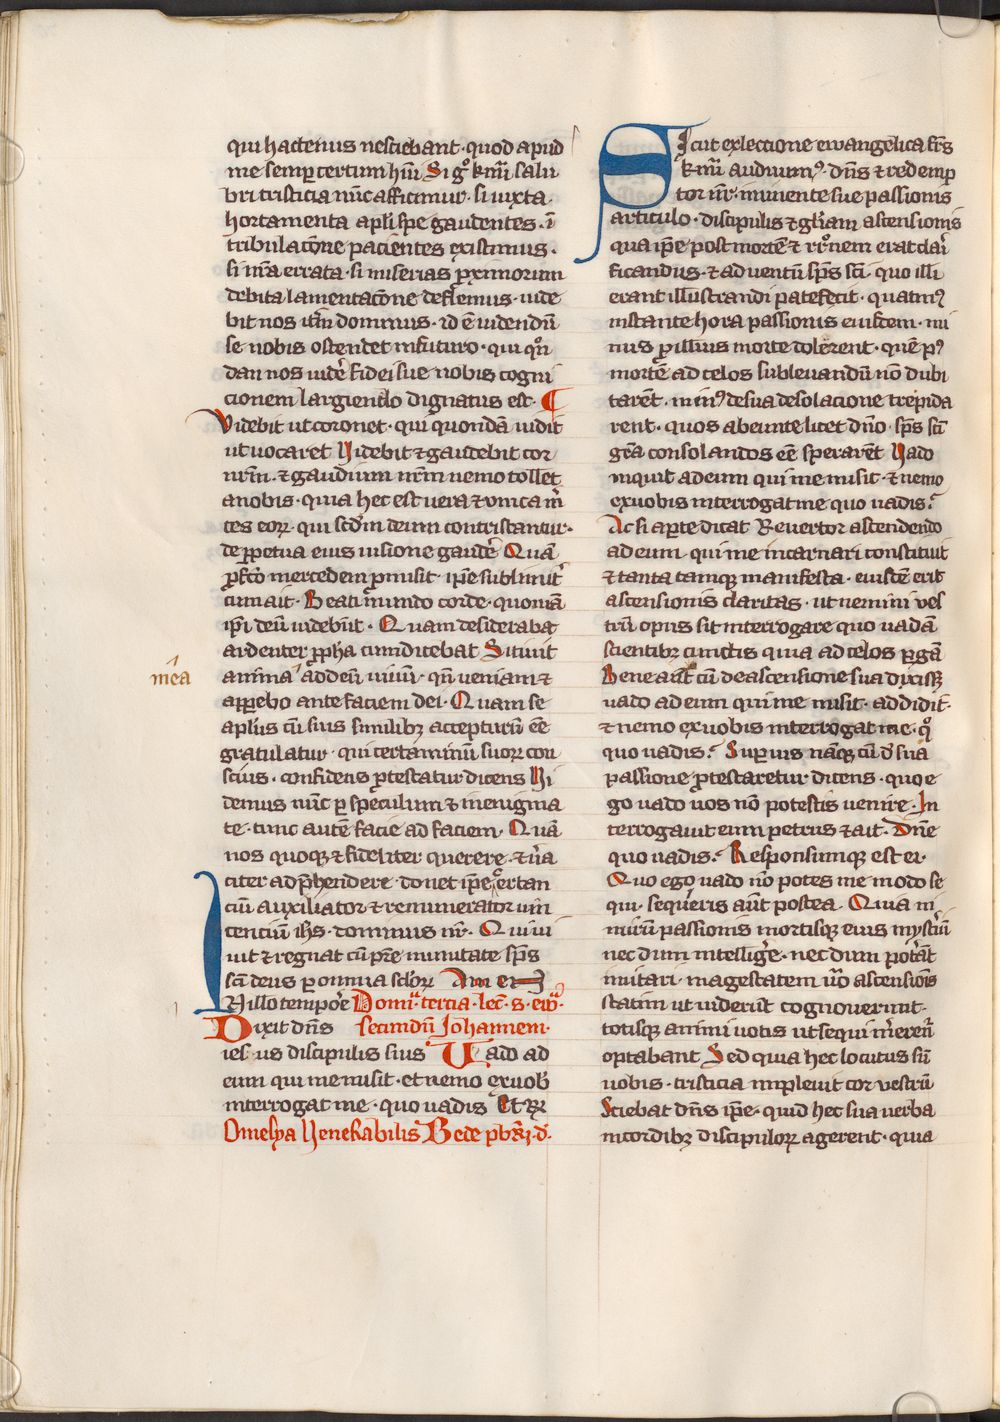 qui hactenus nesciebant · quod apud
me semp certum hūi Si gͦ kmī salu
bri tristicia nūc afficimur · si iuxta
hortamenta apl̄i spe gaudentes · ī
tribulacōne pacientes existimus ·
si nr̄a errata · si miserias ꝓximorum
debita lamentacōne deflemus · uide
bit nos itm̄ dominus · id ē uidendū
se nobis ostendet in futuro · qui qͦn
dan nos uidē fidei sue nobis cogni
cionem largiendo dignatus est · ¶
Videbit ut coronet · qui quondā uidit
ut uocaret Videbit & gaudebit cor
nrm̄ · & gaudium nrm̄ nemo tollet
a nobis · quia hec est uera & unica m̄
ces eoꝝ · qui scdm̄ deum contristantur ·
de ꝑpetua eius uisione gaudē Quā
ꝓfcō mercedem ꝓmisit · ipe sublimit̄
cum ait · Beati mundo corde · quoniā
ip̄i deū uidebūt · Quam desideraba
ardenter ꝓpha cum dicebat Sitiuit
anima ad deū uiuū · qn̄ ueniam &
apꝑebo ante faciem dei · Quam se
mea
aplius cū suis similibꝫ accepturū ēē
gratulatur · qui certaminū suoꝝ con
scius · confidens ꝓtestatur dicens Vi
demus nūc ꝑ speculum & in enigma
te · tunc autē facie ad faciem · Quā
nos quoqꝫ & fideliter querere · & ūa
citer adp̄hendere · donet ipe certan
ciū auxiliator & remunerator uin
cenciū ih̄s · dominus nr̄ · Qui ui
uit & regnat cū pr̄e in unitate sp̄s
sc̄i deus ꝑ omnia sc̄loꝝ Amen
IN illo tempōe Domiͣ · tercia · lec̄ · s · ewͣ ·
Dixit dn̄s secundū Johannem ·
iesus discipulis suis Uado ad
eum qui me misit · et nemo ex uob̄
interrogat me · quo uadis Et Rͬ
Omelya Venerabilis Bede pb̄ri · d ·
Sicut ex lectione ewangelica frs̄
kmī audiuimꝰ · dn̄s & redemp
tor nr̄ · iminente sue passionis
articulo · discipulis & glīam ascensionis
qua ipe post mortē & rr̄onem erat clari
ficandus · & aduentū sp̄s sc̄i · quo illi
erant illustrandi patefecit · quatinꝰ
instante hora passionis eiusdem · mi
nus ꝑ illius morte dolerent · quē pꝰ
mortē ad celos subleuandū nō dubi
tarēt · minꝰ de sua desolacione trepida
rent · quos abeunte licet dn̄o · sp̄s sc̄i
grā consolandos eē sperarēt Uado
inquit ad eum qui me misit · & nemo
ex uobis interrogat me quo uadis?
Ac si aꝑte dicat Reuertor ascendendo
ad eum · qui me incarnari constituit
& tanta tamqꝫ manifesta · eiusdē erit
ascensionis claritas · ut nemini ves
trū opus sit interrogare quo uadā
scientibꝫ cunctis quia ad celos ꝑgā
Bene aūt cū de ascensione sua dixissꝫ
uado ad eum qui me misit · addidit ·
& nemo ex uobis interrogat me · qͦ
quo uadis? Superius nāqꝫ cū d̄ sua
passione ꝓtestaretur dicens · quo e
go uado uos nō potestis uenire · In
terrogauit eum petrus & ait · Dn̄e
quo uadis? Responsumqꝫ est ei ·
Quo ego uado nō potes me modo se
qui · sequeris aūt postea · Quia ni
mirū passionis mortisqꝫ eius mystiū
nec dum intelligē · nec dum poterāt
imitari · magestatem ūo ascensiōis
statim ut uiderūt cognouerunt ·
totisqꝫ animi uotis ut sequi merent̄
optabant Sed quia hec locutus sū
uobis · tristicia impleuit cor vestrū
Sciebat dn̄s ipe · quid hec sua uerba
in cordibꝫ discipuloꝝ agerent · quia